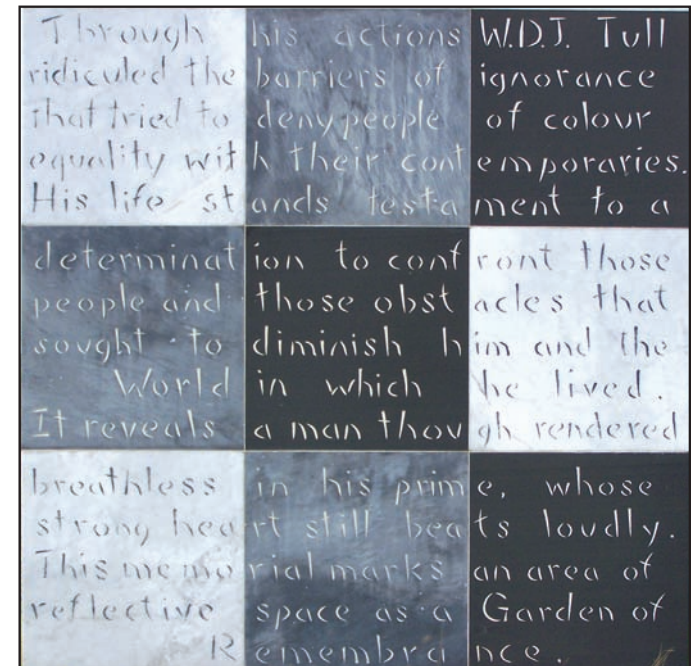 Through his actions W.D.J. Tull
ridiculed the barriers of ignorance
that tried to deny people of colour
equality with their contemporaries.
His life stands testament to a
determination to confront those
people and those obstacles that
sought to diminish him and the
World in which he lived.
It reveals a man though rendered
breathless in his prime, whose
strong heart still beats loudly.
This memorial marks an area of
reflective space as a Garden of
Remembrance.